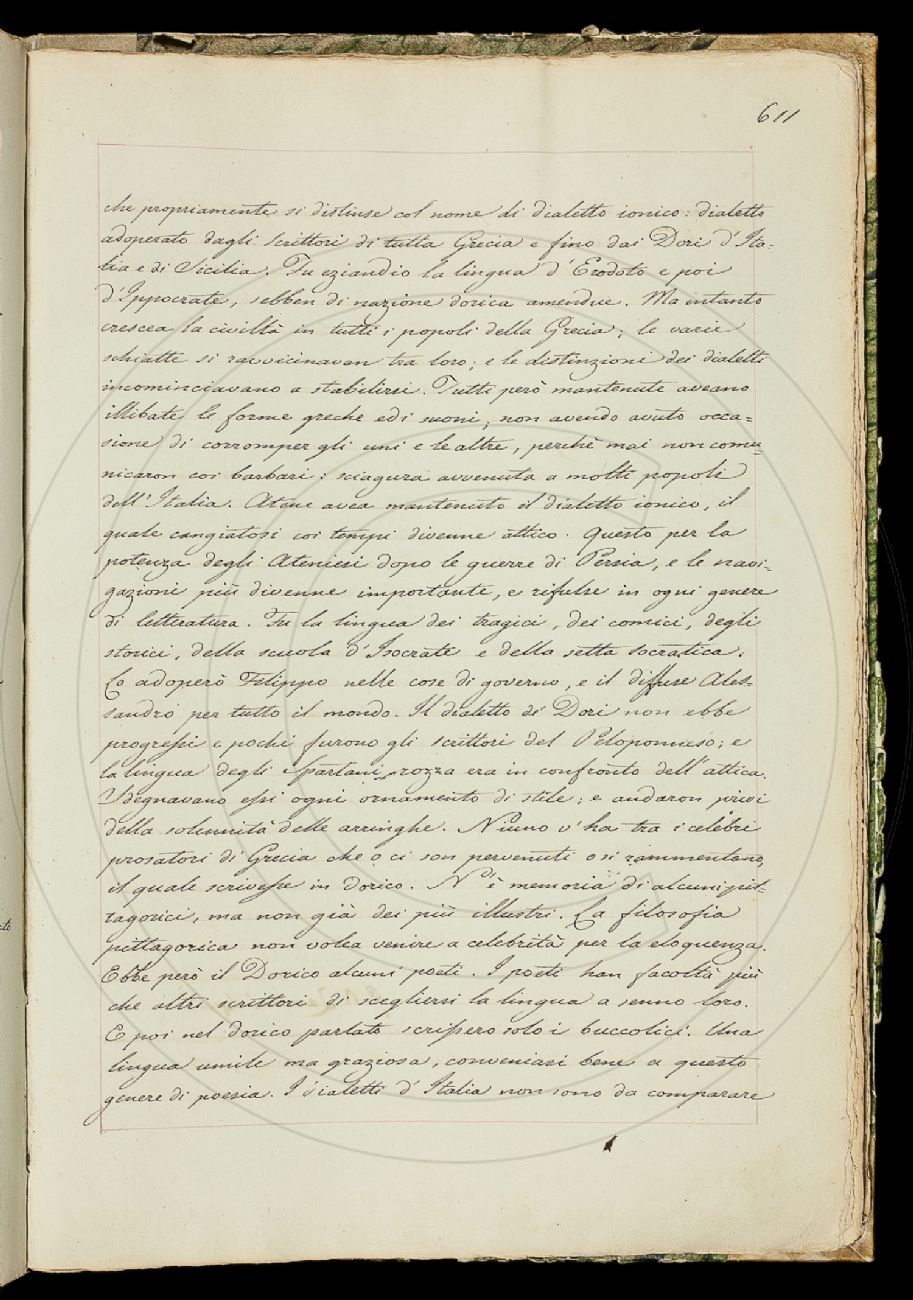 611
che propriamente si distinse col nome di dialetto ionico: dialetto
adoperato dagli scrittori di tutta Grecia e fino dai Dori d'Ita-
lia e di Sicilia. Fu eziandio la lingua d'Erodoto e poi
d'Ippocrate, sebben di nazione dorica amendue. Ma intanto
crescea la civiltà in tutti i popoli della Grecia; le varie
schiatte si ravvicinavan tra loro; e le distinzioni dei dialetti
incominciavano a stabilirsi. Tutti però mantenute aveano
illibate le forme greche ed i suoni; non avendo avuto occa-
sione di corromper gli uni e le altre, perchè mai non comu-
nicaron coi barbari: sciagura avvenuta a molti popoli
dell'Italia. Atene avea mantenuto il dialetto ionico, il
quale cangiatosi coi tempi divenne attico. Questo per la
potenza degli Ateniesi dopo le guerre di Persia, e le navi-
gazioni più divenne importante, e rifulse in ogni genere
di letteratura. Fu la lingua dei tragici, dei comici, degli
storici, della scuola d'Isocrate e della setta socratica.
Lo adoperò Filippo nelle cose di governo, e il diffuse Ales-
sandro per tutto il mondo. Il dialetto de' Dori non ebbe
progressi e pochi furono gli scrittori del Peloponneso; e
la lingua degli Spartani rozza era in confronto dell'attica.
Sdegnavano essi ogni ornamento di stile; e andaron privi
della solennità delle arringhe. Niuno v'ha tra i celebri
prosatori di Grecia che o ci son pervenuti o si rammentano,
il quale scrivesse in dorico. N'è memoria di alcuni pit-
tagorici, ma non già dei più illustri. La filosofia
pittagorica non volea venire a celebrità per la eloquenza.
Ebbe però il Dorico alcuni poeti. I poeti han facoltà più
che altri scrittori di scegliersi la lingua a senno loro.
E poi nel dorico parlato scrissero solo i buccolici. Una
lingua umile ma graziosa, conveniasi bene a questo
genere di poesia. I dialetti d'Italia non sono da comparare